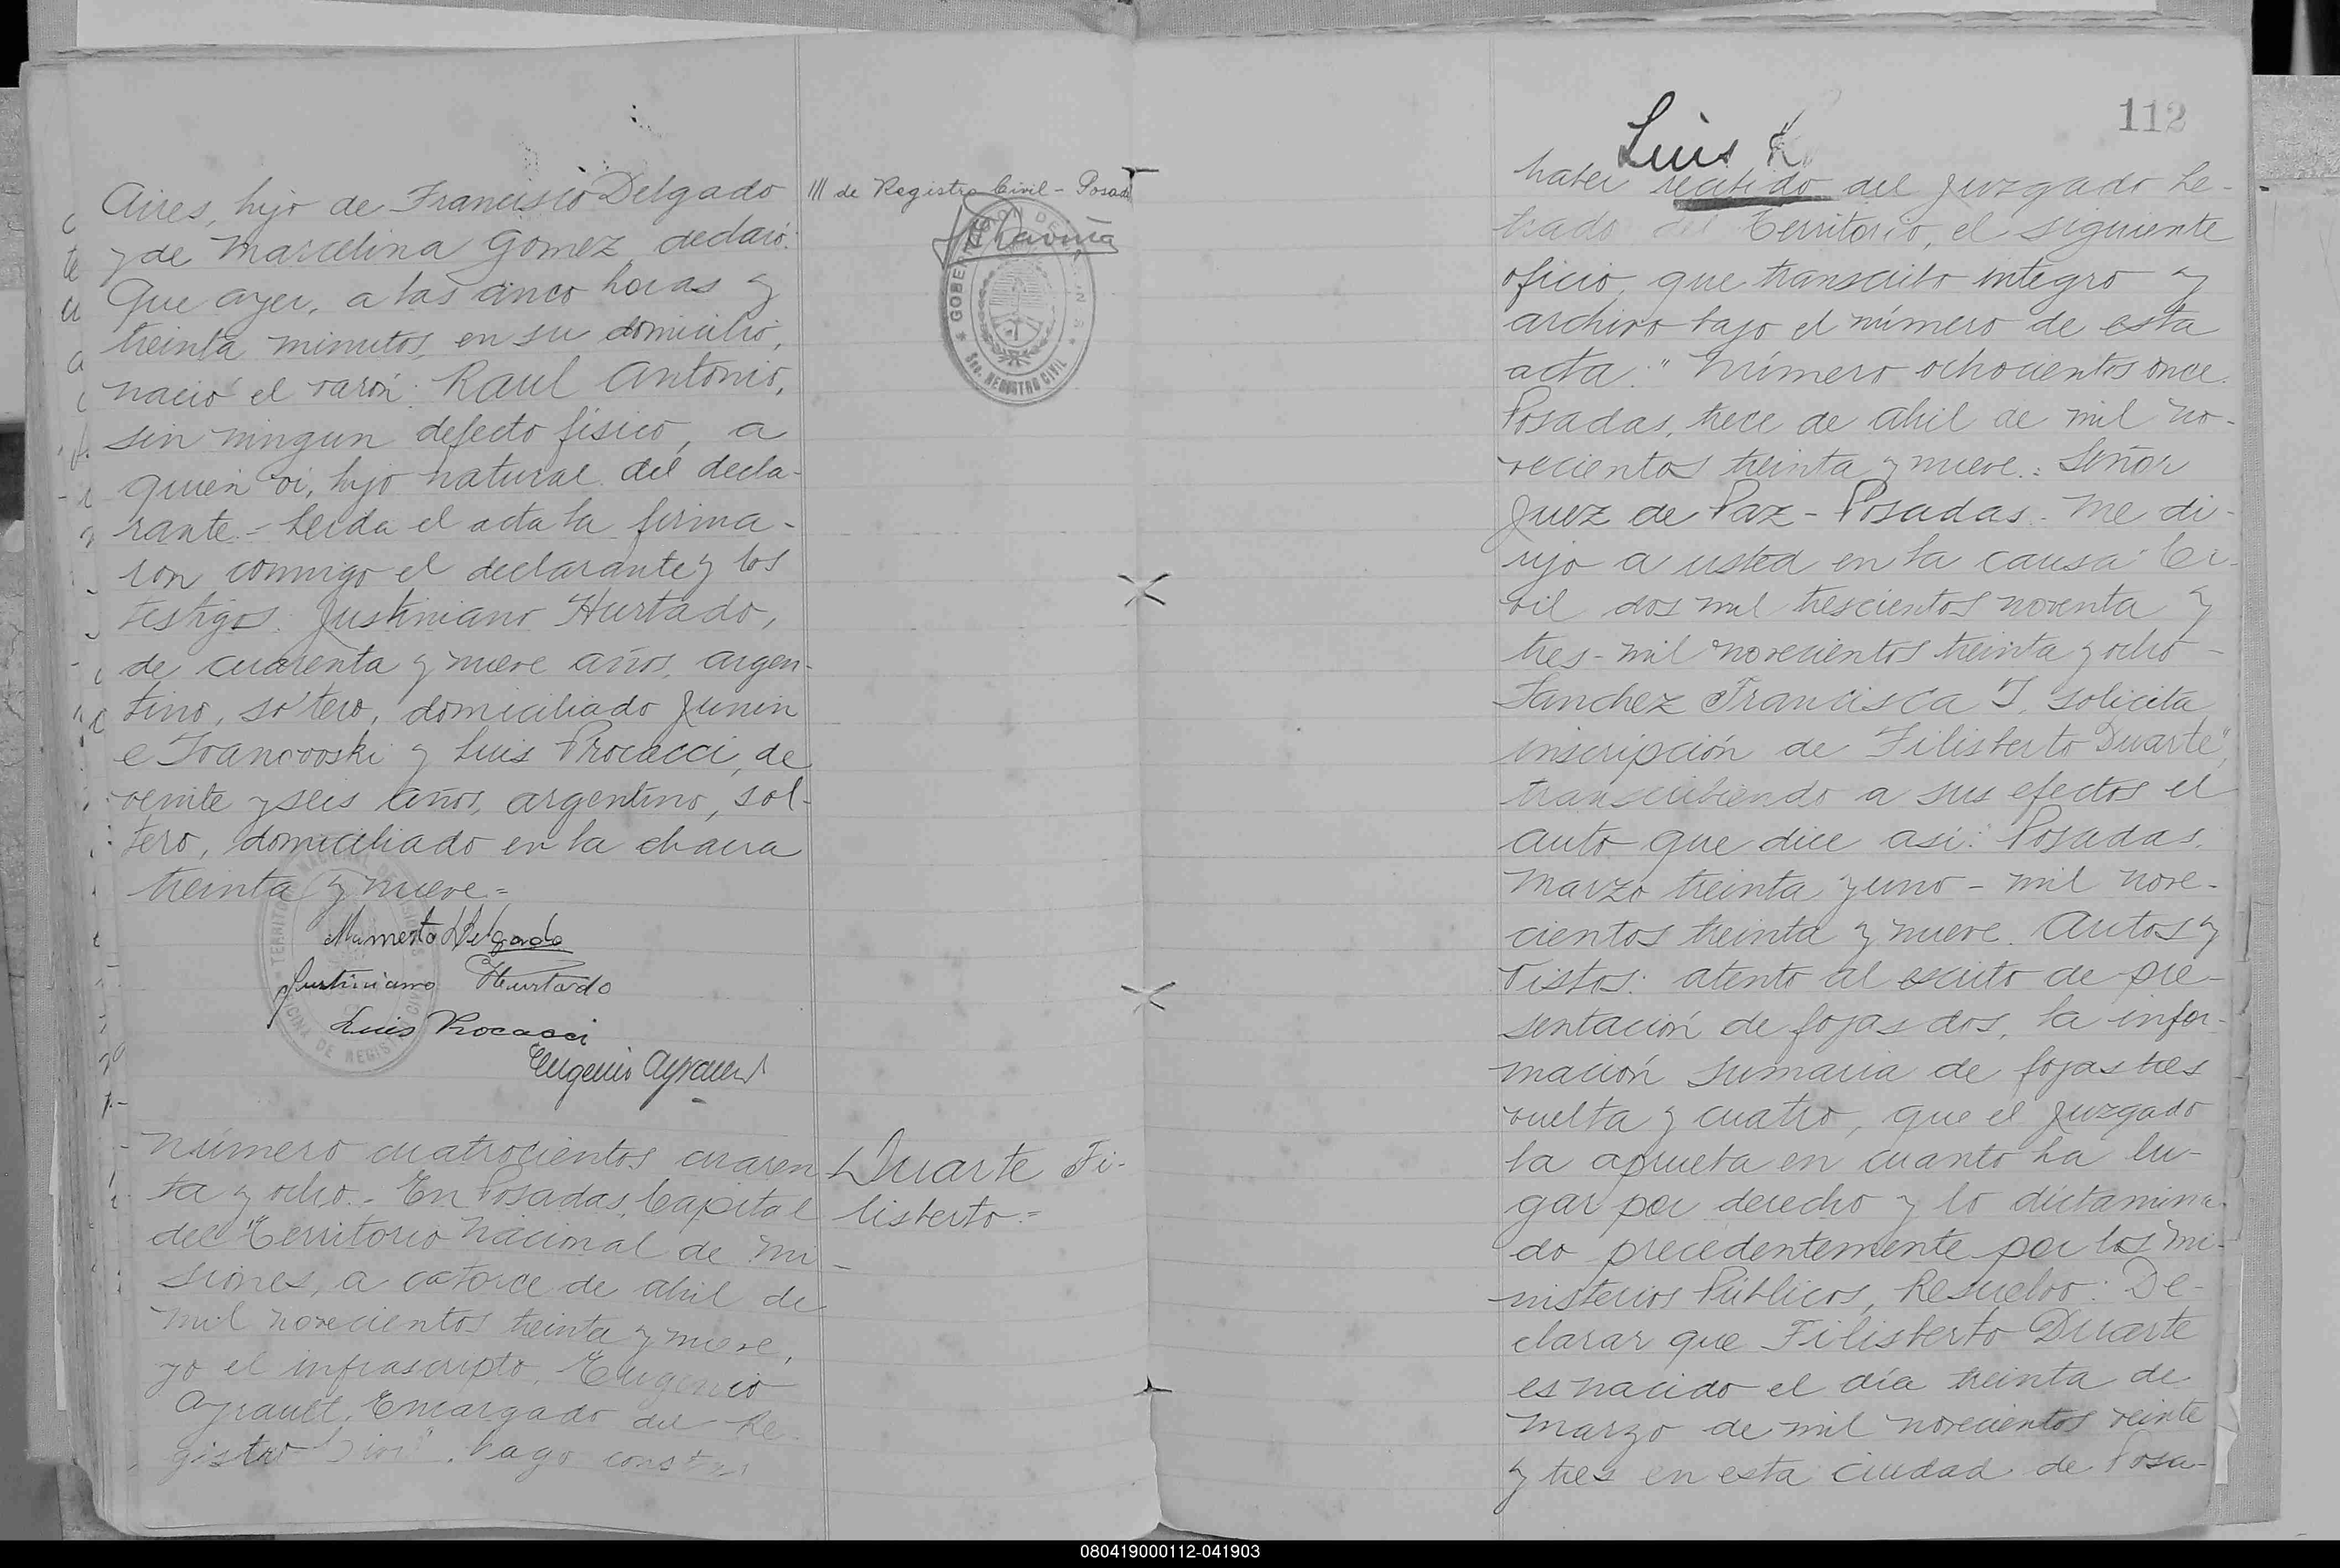 Aires, hijo de Francisco Delgado
y de Marcelina Gomez, declaró:
Que ayer, a las cinco horas y
treinta minutos, en su domicilio,
nació el varón: Raul Antonio,
sin ningun defecto físico, a
quien vi, hijo natural del decla-
rante.- Leida el acta la firma-
ron conmigo el declarante y los
testigos: Justiniano Hurtado,
de cuarenta y nueve años, argen-
tino, soltero, domiciliado Junin
e Ivanovski y Luis Procacci, de
veinte y seis años, argentino, sol-
tero, domiciliado en la chacra
treinta y nueve=
Mamerto Delgado
Justiniano Hurtado
Luis Procacci
Eugenio Ayrault
Número cuatrocientos cuaren
ta y ocho.- En Posadas, Capital
del Territorio Nacional de Mi-
siones, a catorce de abril de
mil novecientos treinta y nueve,
yo el infrascripto, Eugenio
Ayrault, Encargado del Re-
gistro Civil, hago constar
de Registro Civil - Posadas
GOBERNACION DE
Sec. REGISTRO CIVIL
Duarte Fi-
listerto.=
112
Luis
haber recibido del Juzgado Le-
trado del Territorio, el siguiente
oficio, que transcribo integro y
archivo bajo el número de esta
acta: "Número ochocientos once.
Posadas, trece de abril de mil no-
vecientos treinta y nueve.= Señor
Juez de Paz - Posadas.- Me di-
rijo a usted en la causa "Ci-
vil dos mil trescientos noventa y
tres - mil novecientos treinta y ocho -
Sanchez Francisca T. solicita
inscripción de Filisberto Duarte",
transcribiendo a sus efectos el
auto que dice así: "Posadas,
Marzo treinta y uno - mil nove-
cientos treinta y nueve. Autos y
Vistos: atento al escrito de pre-
sentación de fojas dos, la infor-
mación sumaria de fojas tres
vuelta y cuatro, que el Juzgado
la aprueba en cuanto ha lu-
gar por derecho y lo dictamina-
do precedentemente por los Mi-
nisterios Públicos, Resuelvo: De-
clarar que Filisberto Duarte
es nacido el día treinta de
marzo de mil novecientos veinte
y tres en esta ciudad de Posa-
080419000112-041903